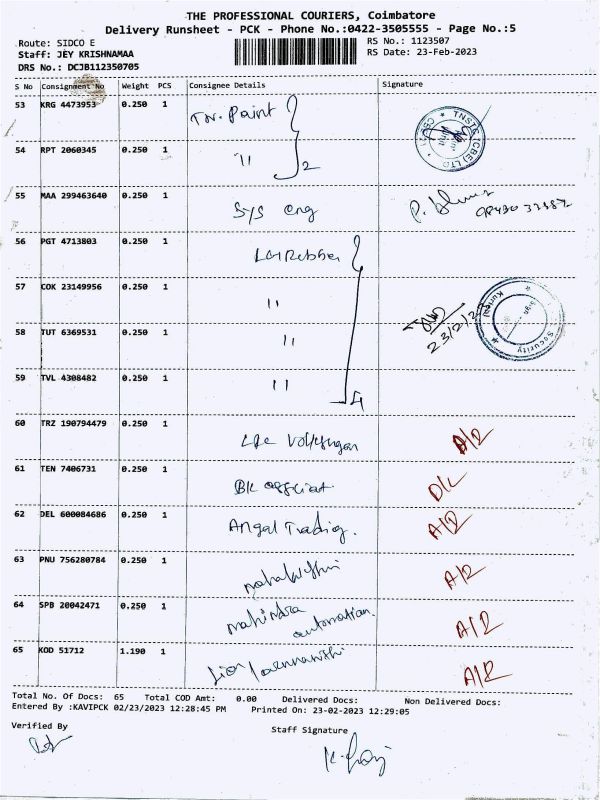 THE PROFESSIONAL COURIERS, Coimbatore
Delivery Runsheet - PCK - Phone No.:0422-3505555 - Page No.:5
Route: SIDCO E
Staff: JEY KRISHNAMAA
DRS No.: DCJB112350705
RS No.: 1123507
RS Date: 23-Feb-2023
S No Consignment No Weight PCS Consignee Details Signature
53 KRG 4473953 0.250 1 Tw. Paint
54 RPT 2060345 0.250 1 " 2
55 MAA 299463640 0.250 1 Sys eng
56 PGT 4713803 0.250 1
57 COK 23149956 0.250 1 "
58 TUT 6369531 0.250 1 "
23/2/2
Security
59 TVL 4308482 0.250 1 " 4
60 TRZ 190794479 0.250 1 A/2
61 TEN 7406731 0.250 1 BK D/L
62 DEL 600084686 0.250 1 Angal Trading. A/2
63 PNU 756280784 0.250 1 A/2
64 SPB 20042471 0.250 1 mahindra automation. A/2
65 KOD 51712 1.190 1 Lion A/2
Total No. Of Docs: 65 Total COD Amt: 0.00 Delivered Docs: Non Delivered Docs:
Entered By :KAVIPCK 02/23/2023 12:28:45 PM Printed On: 23-02-2023 12:29:05
Verified By
Staff Signature